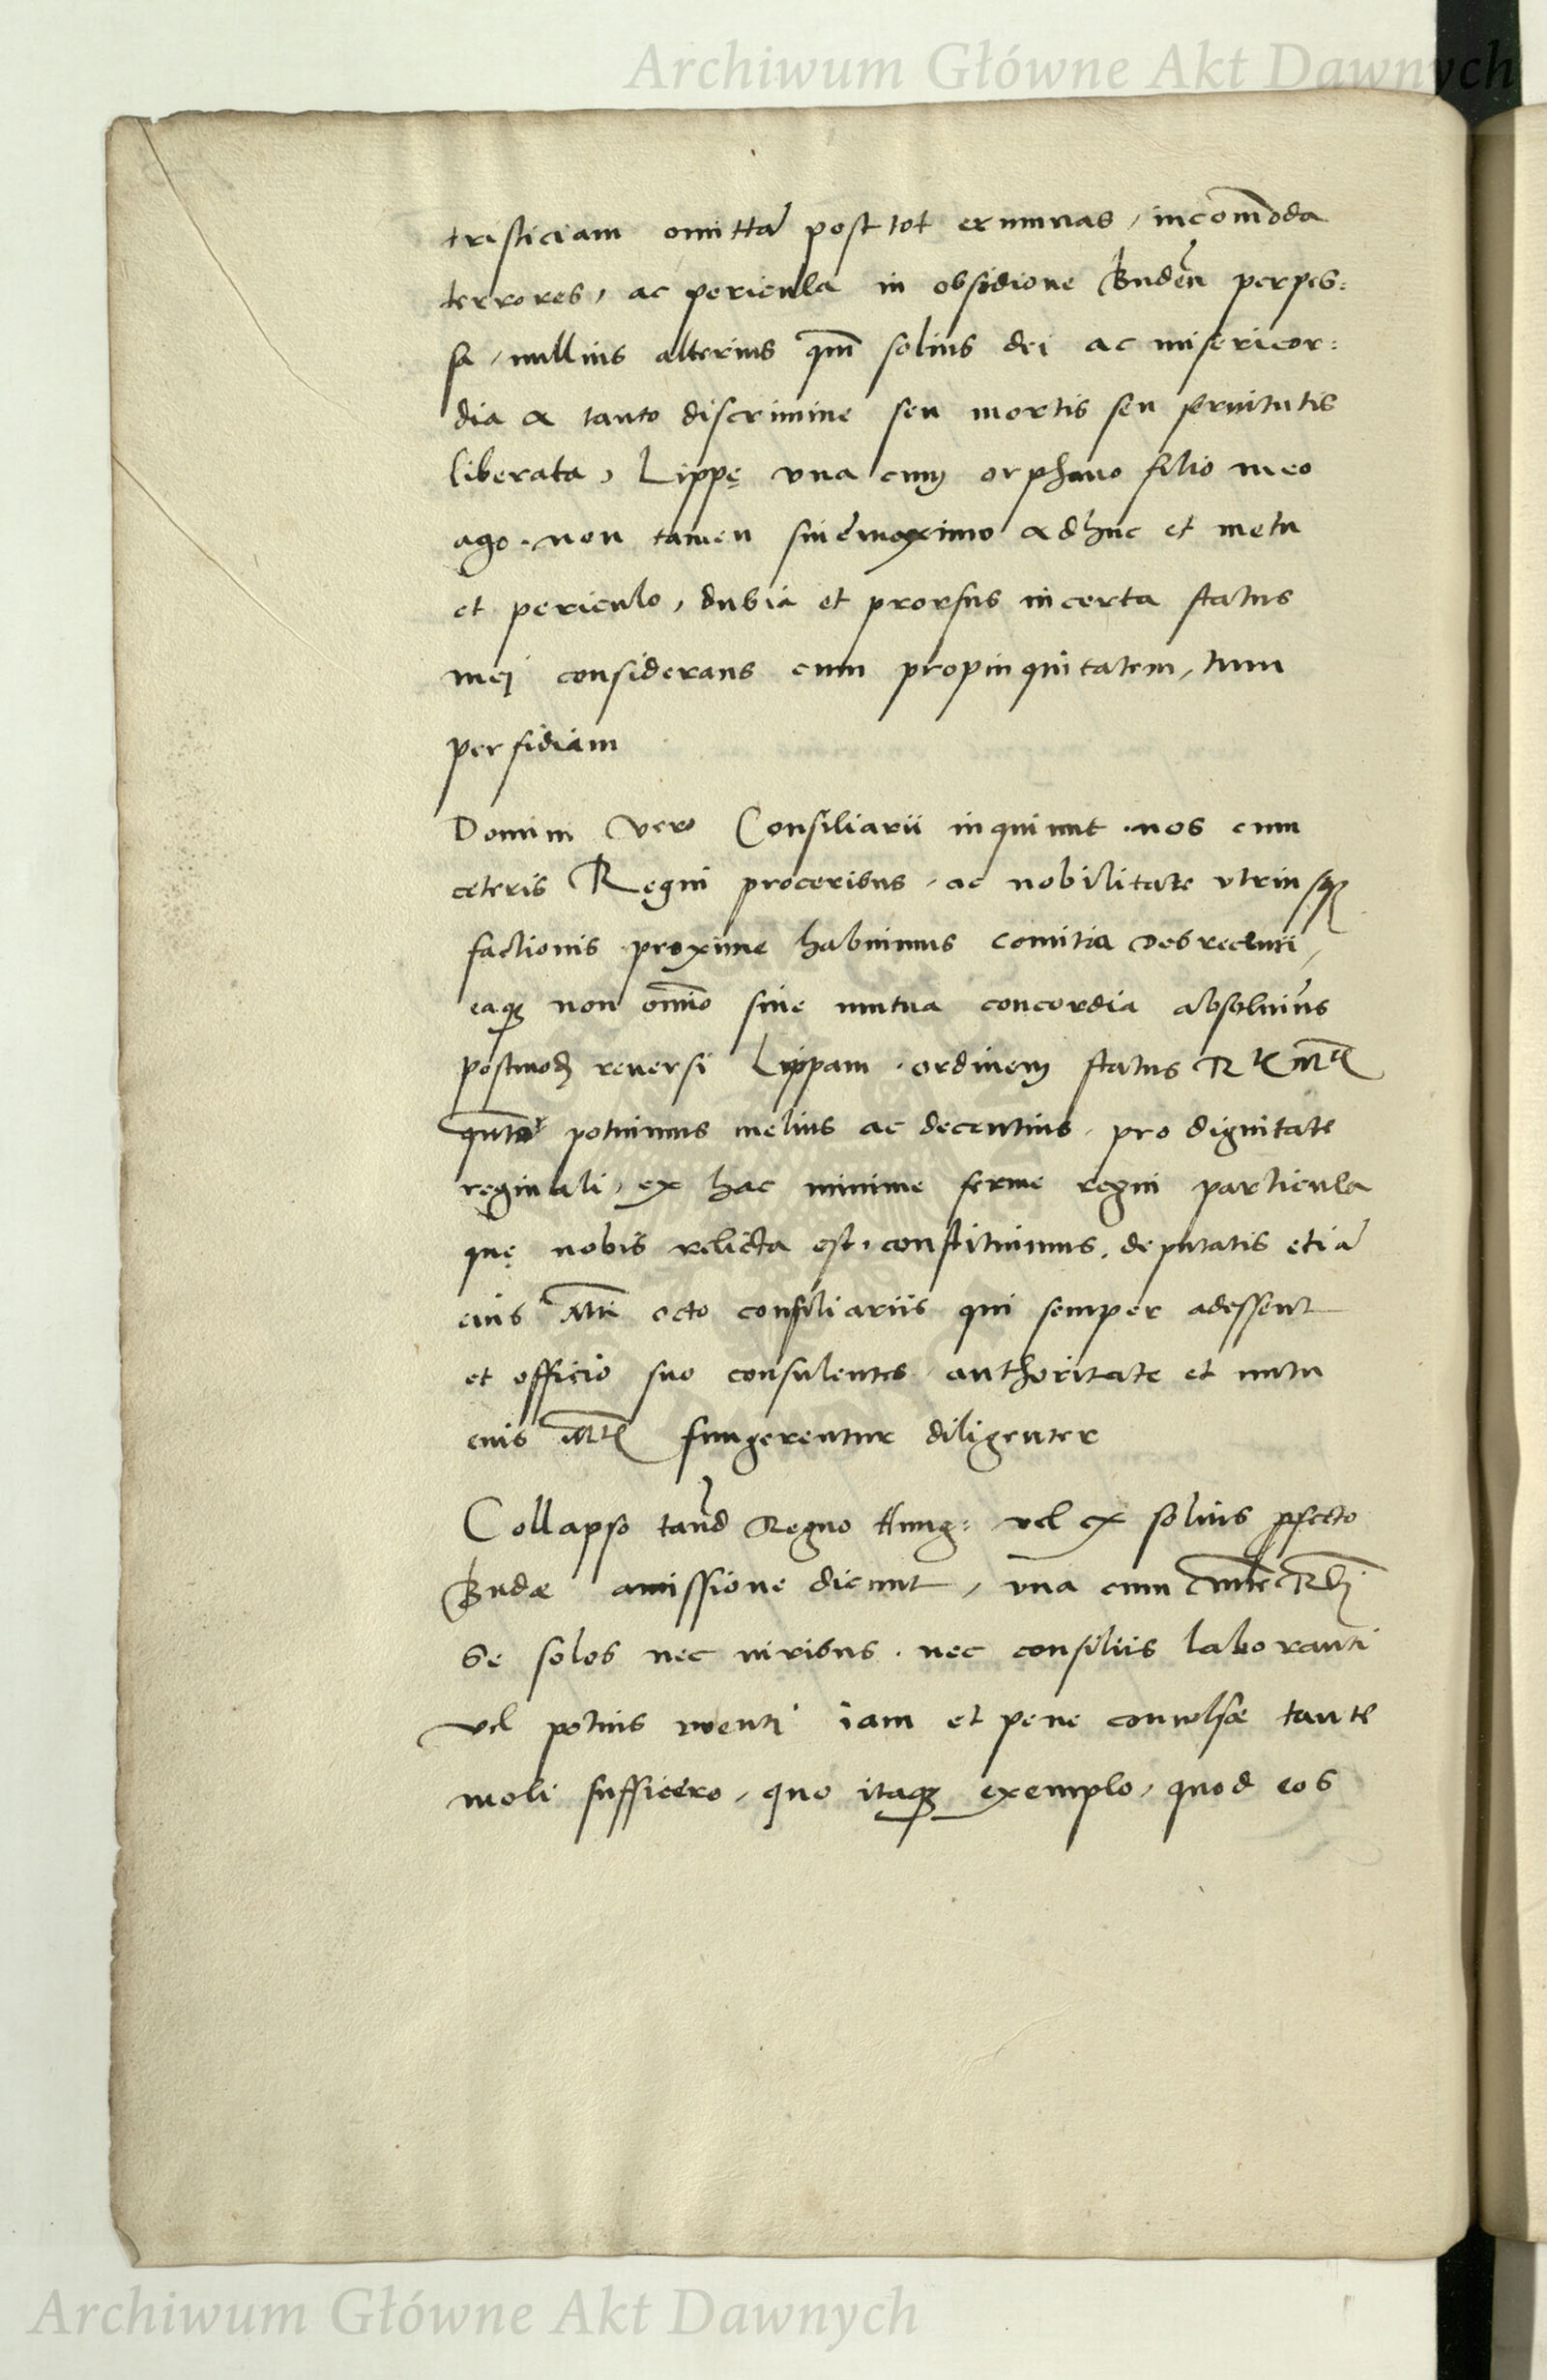 Archiwum Główne Akt Dawnych
tristiciam omittā post tot erumnas, incōmoda
terrores, ac pericula in obsidione Budēn perpes=
sa, nullius alterius qm̄ solius dei ac misericor=
dia a tanto discrimine seu mortis seu seruitutis
liberata, Lippę vna cum orphano filio meo
ago. non tamen sine maximo adhuc et metu
et periculo, dubia et prorsus incerta status
mei considerans cum propinquitatem, tum
perfidiam
Domini vero Consiliarii inquiunt. nos cum
ceteris Regni proceribus, ac nobilitate vtriusqꝫ
factionis proxime habuimus comitia Debreceni,
eaqꝫ non om̄io sine mutua concordia absoluimus
postmod reuersi Lippam. ordinem status Rtꝭ Mtꝭ
potuimus melius ac decentius, pro dignitate
reginali, ex hac minime ferme regni particula
quę nobis relicta est, constituimus, deputatis etiā
eius Mti octo consiliariis qui semper adessent
et officio suo consulentes, authoritate et nutu
eius Mtꝭ fungerentur diligenter
Collapso tand Regno Hung: vel ex solius ꝓfecto
Budæ amissione dicunt, vna cum Mte
Se solos nec viribus. nec consiliis laboranti
vel potius ruenti iam et pene conuulsæ tante
moli sufficere, quo itaqꝫ exemplo, quod eos
Archiwum Główne Akt Dawnych